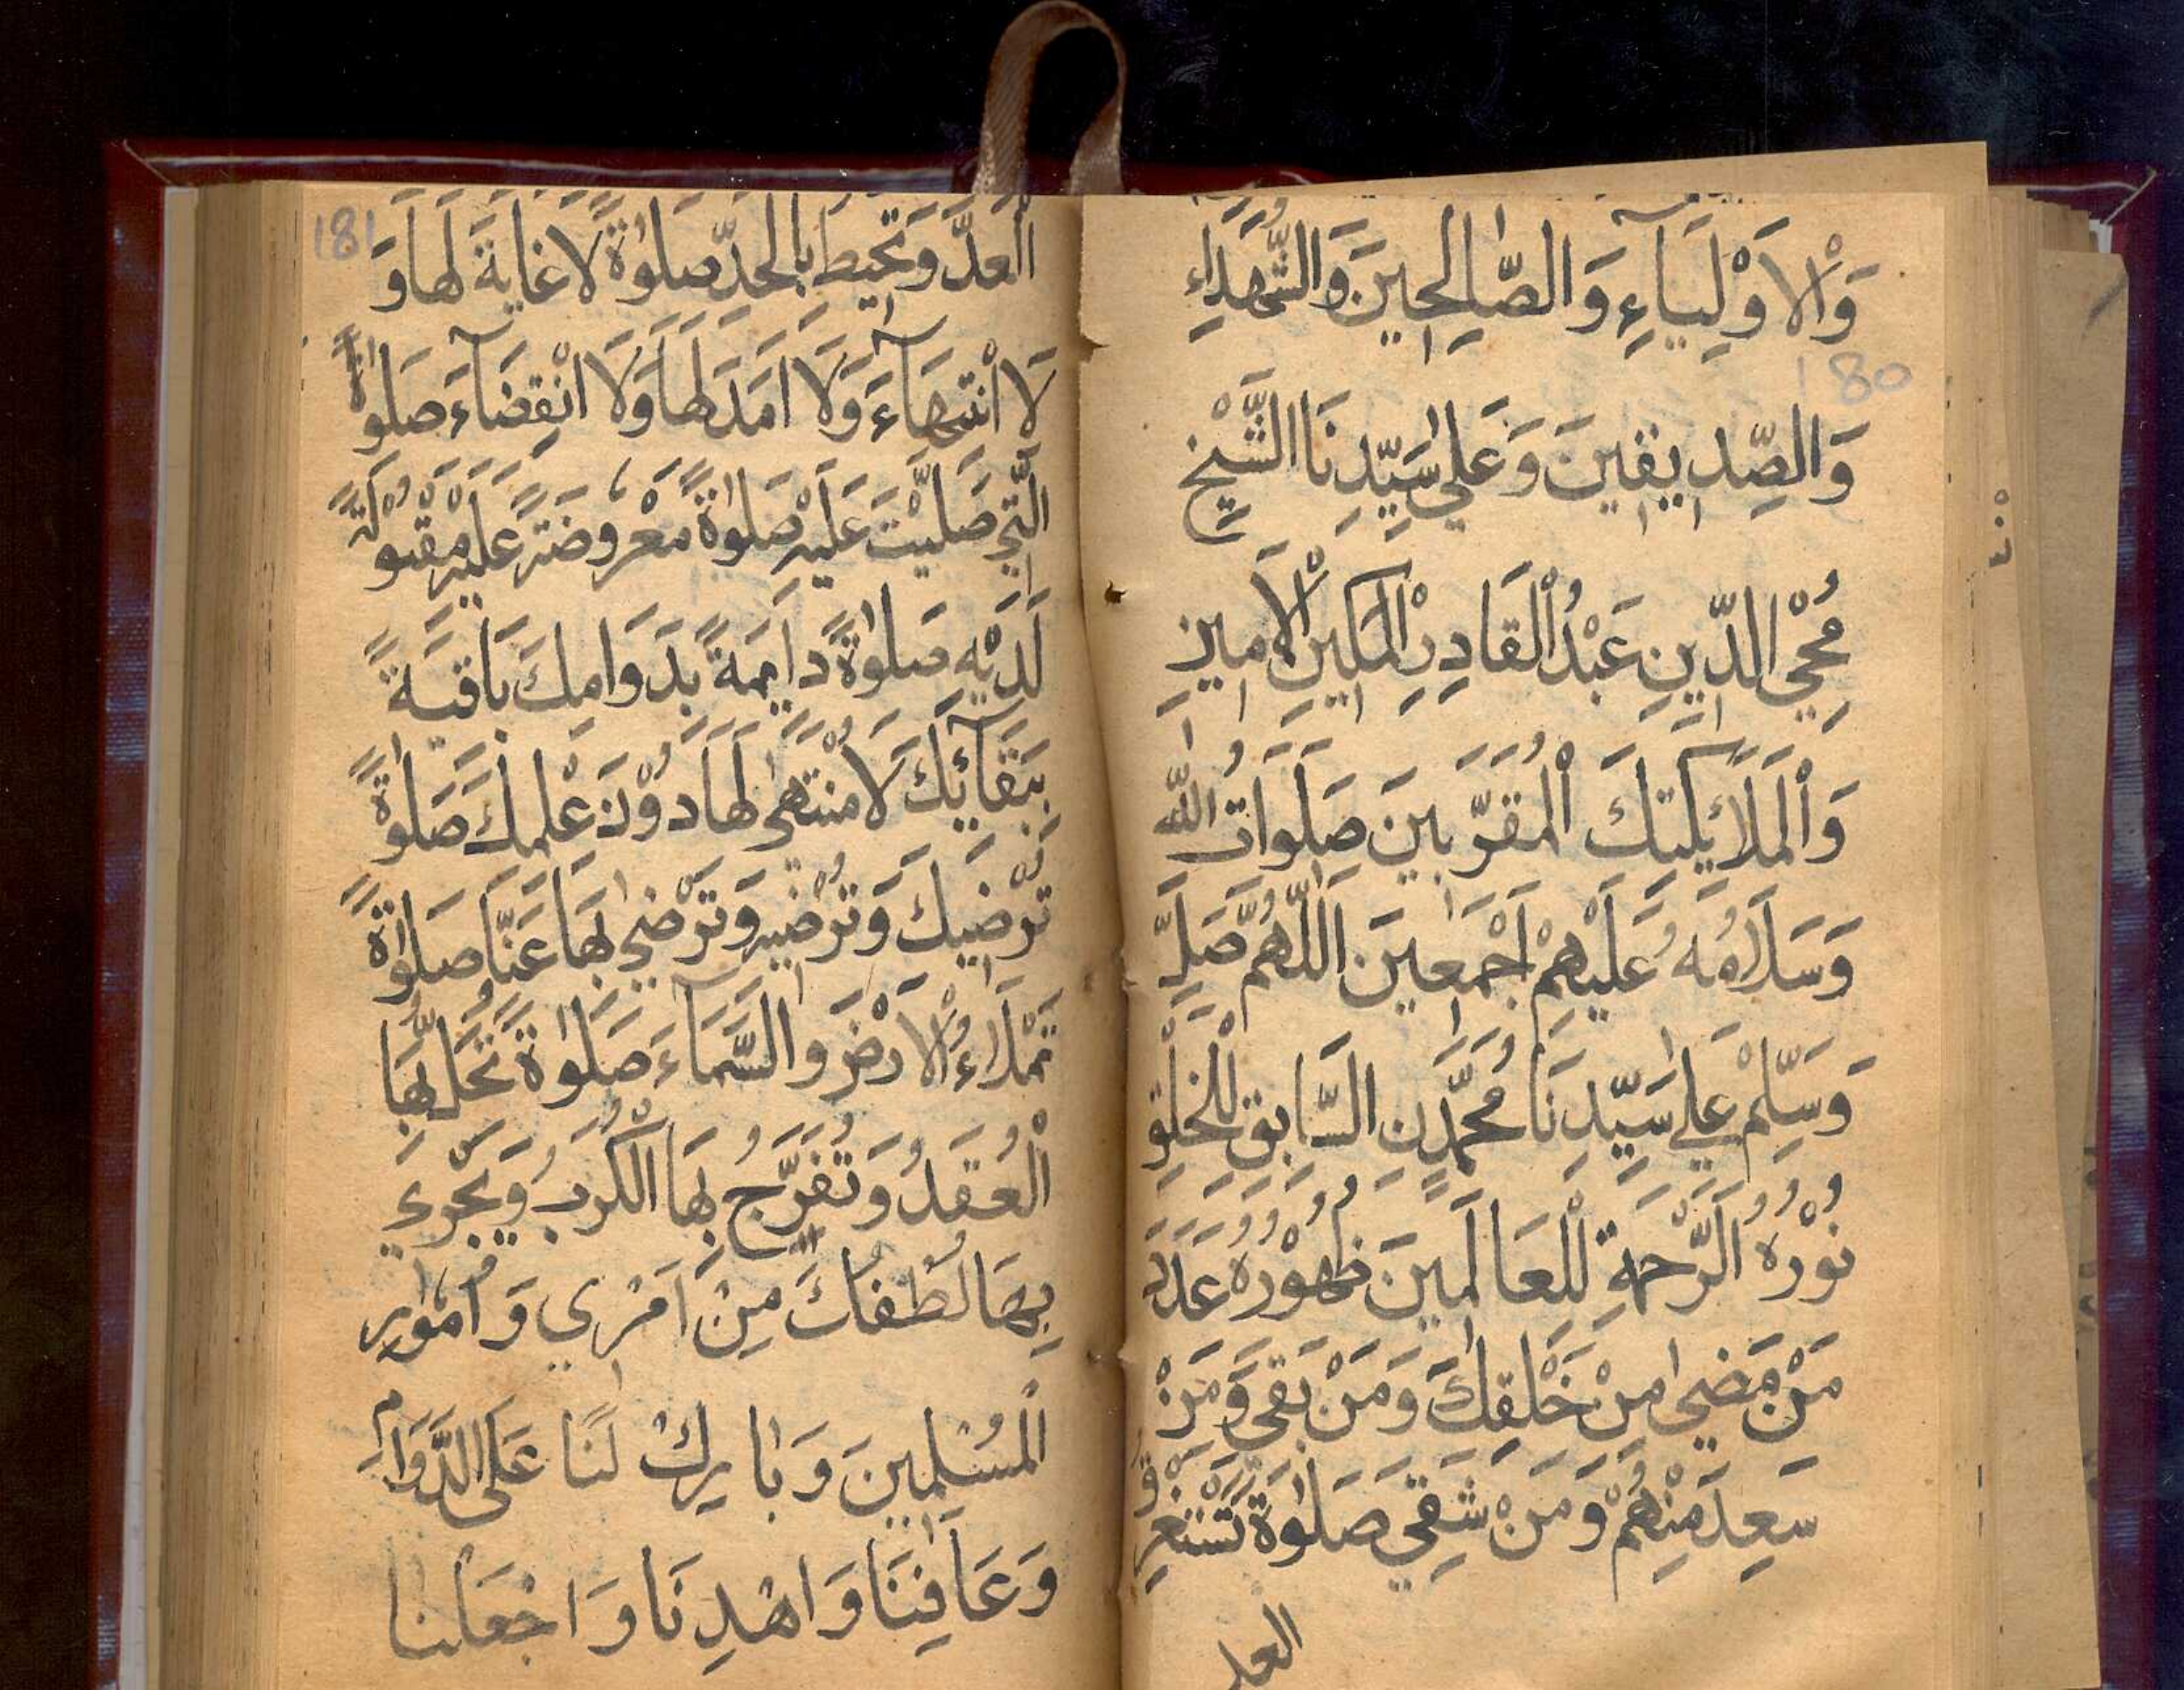 وَالْاَوْلِيَآءِ وَالصَّالِحِيْنَ وَالشُّهَدَاءِ
180
وَالصِّدِّيْقِيْنَ وَعَلٰى سَيِّدِنَا الشَّيْخِ
مُحْيِ الدِّيْنِ عَبْدُ الْقَادِرِ الْمَكِيْنِ الْاَمِيْنِ
وَالْمَلَائِكَتِكَ الْمُقَرَّبِيْنَ صَلَوَاتُ اللّٰهِ
وَسَلَامُهُ عَلَيْهِمْ اَجْمَعِيْنَ اَللّٰهُمَّ صَلِّ
وَسَلِّمْ عَلٰى سَيِّدِنَا مُحَمَّدٍ نِ السَّابِقِ لِلْخَلْقِ
نُوْرُهُ الرَّحْمَةِ لِلْعَالَمِيْنَ ظُهُوْرُهُ عَدَدَ
مَنْ مَضٰى مِنْ خَلْقِكَ وَمَنْ بَقِيَ وَمَنْ
سَعِدَ مِنْهُمْ وَمَنْ شَقِيَ صَلٰوةً تَسْتَغْرِقُ
العد
181
الْعَدَّ وَتُحِيْطُ بِالْحَدِّ صَلٰوةً لَا غَايَةَ لَهَا وَ
لَا انْتِهَآءَ وَلَا اَمَدَ لَهَا وَلَا انْقِضَآءَ صَلٰوةً
الَّتِيْ صَلَّيْتَ عَلَيْهِ صَلٰوةً مَعْرُوضَةً عَلَيْهِ مَقْبُوْلَةً
لَدَيْهِ صَلٰوةً دَايِمَةً بِدَوَامِكَ بَاقِيَةً
بِبَقَآئِكَ لَا مُنْتَهٰى لَهَا دُوْنَ عِلْمِكَ صَلٰوةً
تُرْضِيْكَ وَتُرْضِيْهِ وَتَرْضٰى بِهَا عَنَّا صَلٰوةً
تَمْلَاءُ الْاَرْضَ وَالسَّمَآءَ صَلٰوةً تَحُلُّ بِهَا
الْعُقَدُ وَتُفَرِّجُ بِهَا الْكُرَبُ وَيَجْرِي
بِهَا لُطْفُكَ مِنْ اَمْرِي وَاُمُوْرِ
الْمُسْلِمِيْنَ وَبَارِكْ لَنَا عَلَى الدَّوَامِ
وَعَافِنَا وَاهْدِنَا وَاجْعَلْنَا